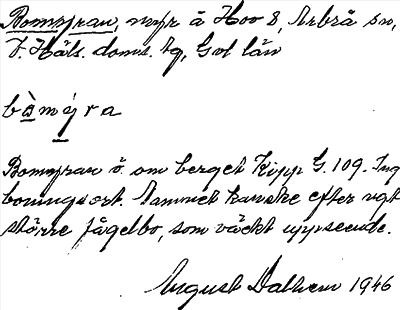 Bomyran, myr å Hov 8, Arbrå sn,
V. Häls. doms. tg, Gvl län
bòmýra
Bomyran ö. om berget Kipp G. 109. Ing
boningsort. Namnet kanske efter ngt
större fågelbo, som väckt uppseende.
August Dalhem 1946